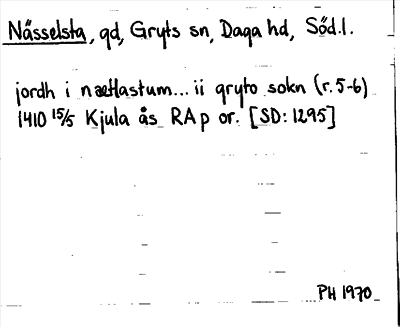 Nässelsta, gd, Gryts sn, Daga hd, Söd.l.
jordh i næflastum... ii gryto sokn (r. 5-6)
1410 15/5 Kjula ås RAp or. [SD: 1295]
PH 1970